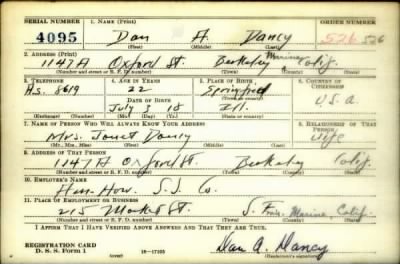 SERIAL NUMBER 1. NAME (Print) ORDER NUMBER
4095 Dan A. Dancy 526 526
(First) (Middle) (Last)
2. ADDRESS (Print)
1147A Oxford St. Berkeley Marine Calif.
(Number and street or R. F. D. number) (Town) (County) (State)
3. TELEPHONE 4. AGE IN YEARS 5. PLACE OF BIRTH 6. COUNTRY OF CITIZENSHIP
As. 8619 22 Springfield
DATE OF BIRTH (Town or county)
July 3 18 Ill. U.S.A.
(Exchange) (Number) (Mo.) (Day) (Yr.) (State or country)
7. NAME OF PERSON WHO WILL ALWAYS KNOW YOUR ADDRESS 8. RELATIONSHIP OF THAT PERSON
Mrs. Janet Dancy Wife
(Mr., Mrs., Miss) (First) (Middle) (Last)
9. ADDRESS OF THAT PERSON
1147A Oxford St. Berkeley Calif.
(Number and street or R. F. D. number) (Town) (County) (State)
10. EMPLOYER'S NAME
S.S. Co.
11. PLACE OF EMPLOYMENT OR BUSINESS
215 Market St. S. Fran. Marine, Calif.
(Number and street or R. F. D. number) (Town) (County) (State)
I AFFIRM THAT I HAVE VERIFIED ABOVE ANSWERS AND THAT THEY ARE TRUE.
REGISTRATION CARD
D. S. S. Form 1 (over) Dan A. Dancy
(Registrant's signature)